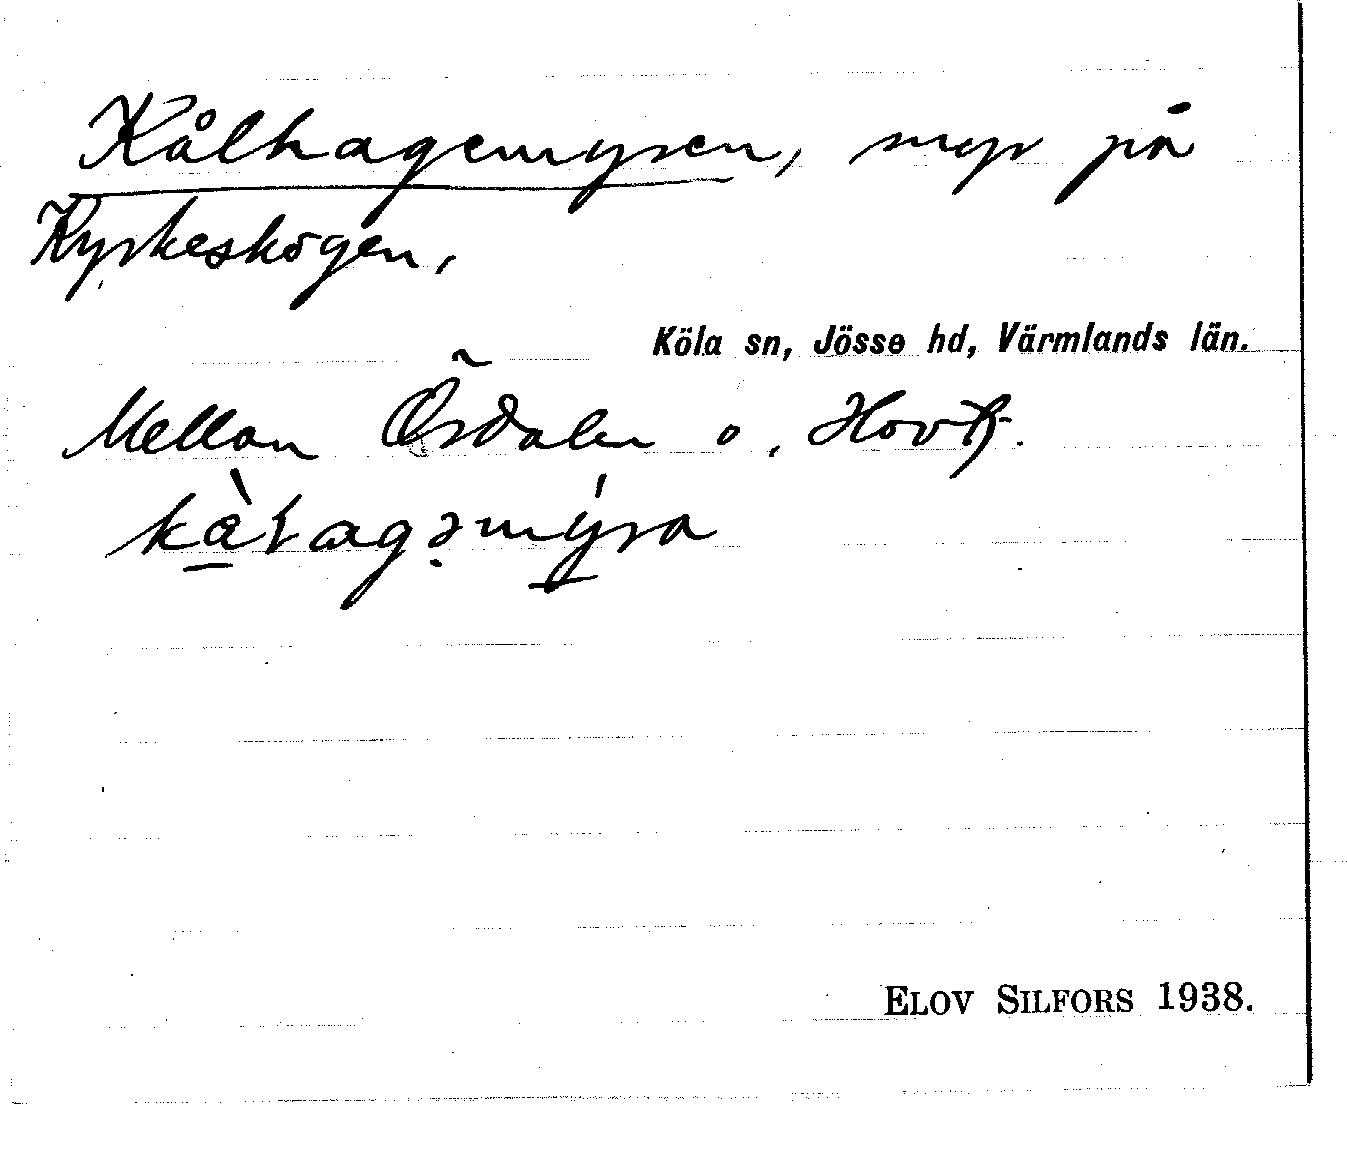 Kålhagemyren, myr på
Kyrkeskogen,
Köla sn, Jösse hd, Värmlands län.
Mellan Ördalen o.
kàlagəmýra
ELOV SILFORS 1938.